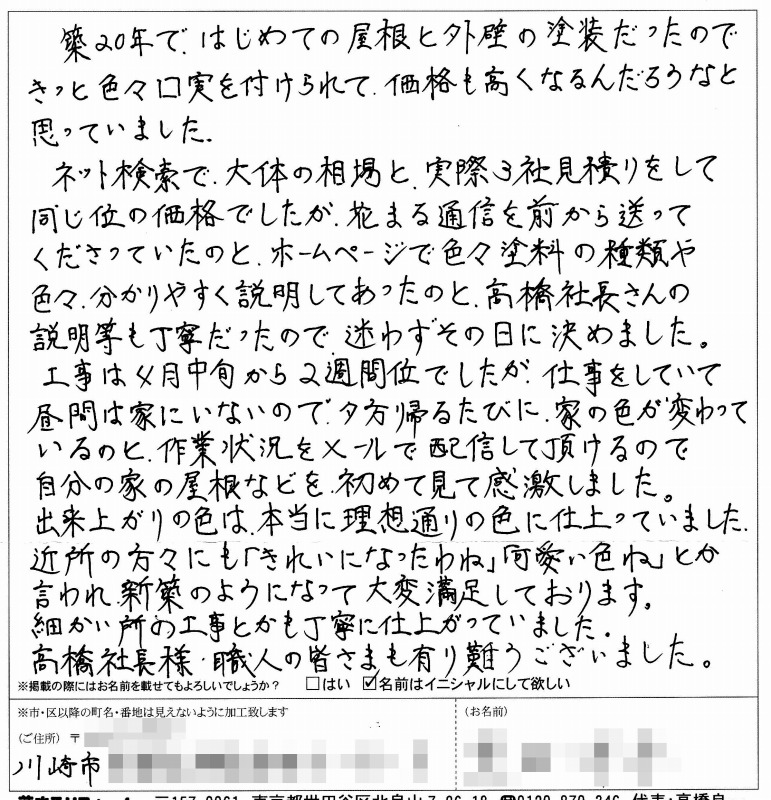 築20年で、はじめての屋根と外壁の塗装だったので
きっと色々口実を付けられて、価格も高くなるんだろうなと
思っていました。
ネット検索で、大体の相場と、実際3社見積りをして
同じ位の価格でしたが、花まる通信を前から送って
くださっていたのと、ホームページで色々塗料の種類や
色々、分かりやすく説明してあったのと、高橋社長さんの
説明等も丁寧だったので、迷わずその日に決めました。
工事は4月中旬から2週間位でしたが、仕事をしていて
昼間は家にいないので、夕方帰るたびに、家の色が変わって
いるのと、作業状況をメールで配信して頂けるので
自分の家の屋根などを、初めて見て感激しました。
出来上がりの色は、本当に理想通りの色に仕上っていました。
近所の方々にも「きれいになったわね」「可愛い色ね」とか
言われ、新築のようになって大変満足しております。
細かい所の工事とかも丁寧に仕上がっていました。
高橋社長様・職人の皆さまも有り難うございました。
※掲載の際にはお名前を載せてもよろしいでしょうか? □はい ☑名前はイニシャルにして欲しい
※市・区以降の町名・番地は見えないように加工致します
(お名前)
(ご住所) 〒
川崎市